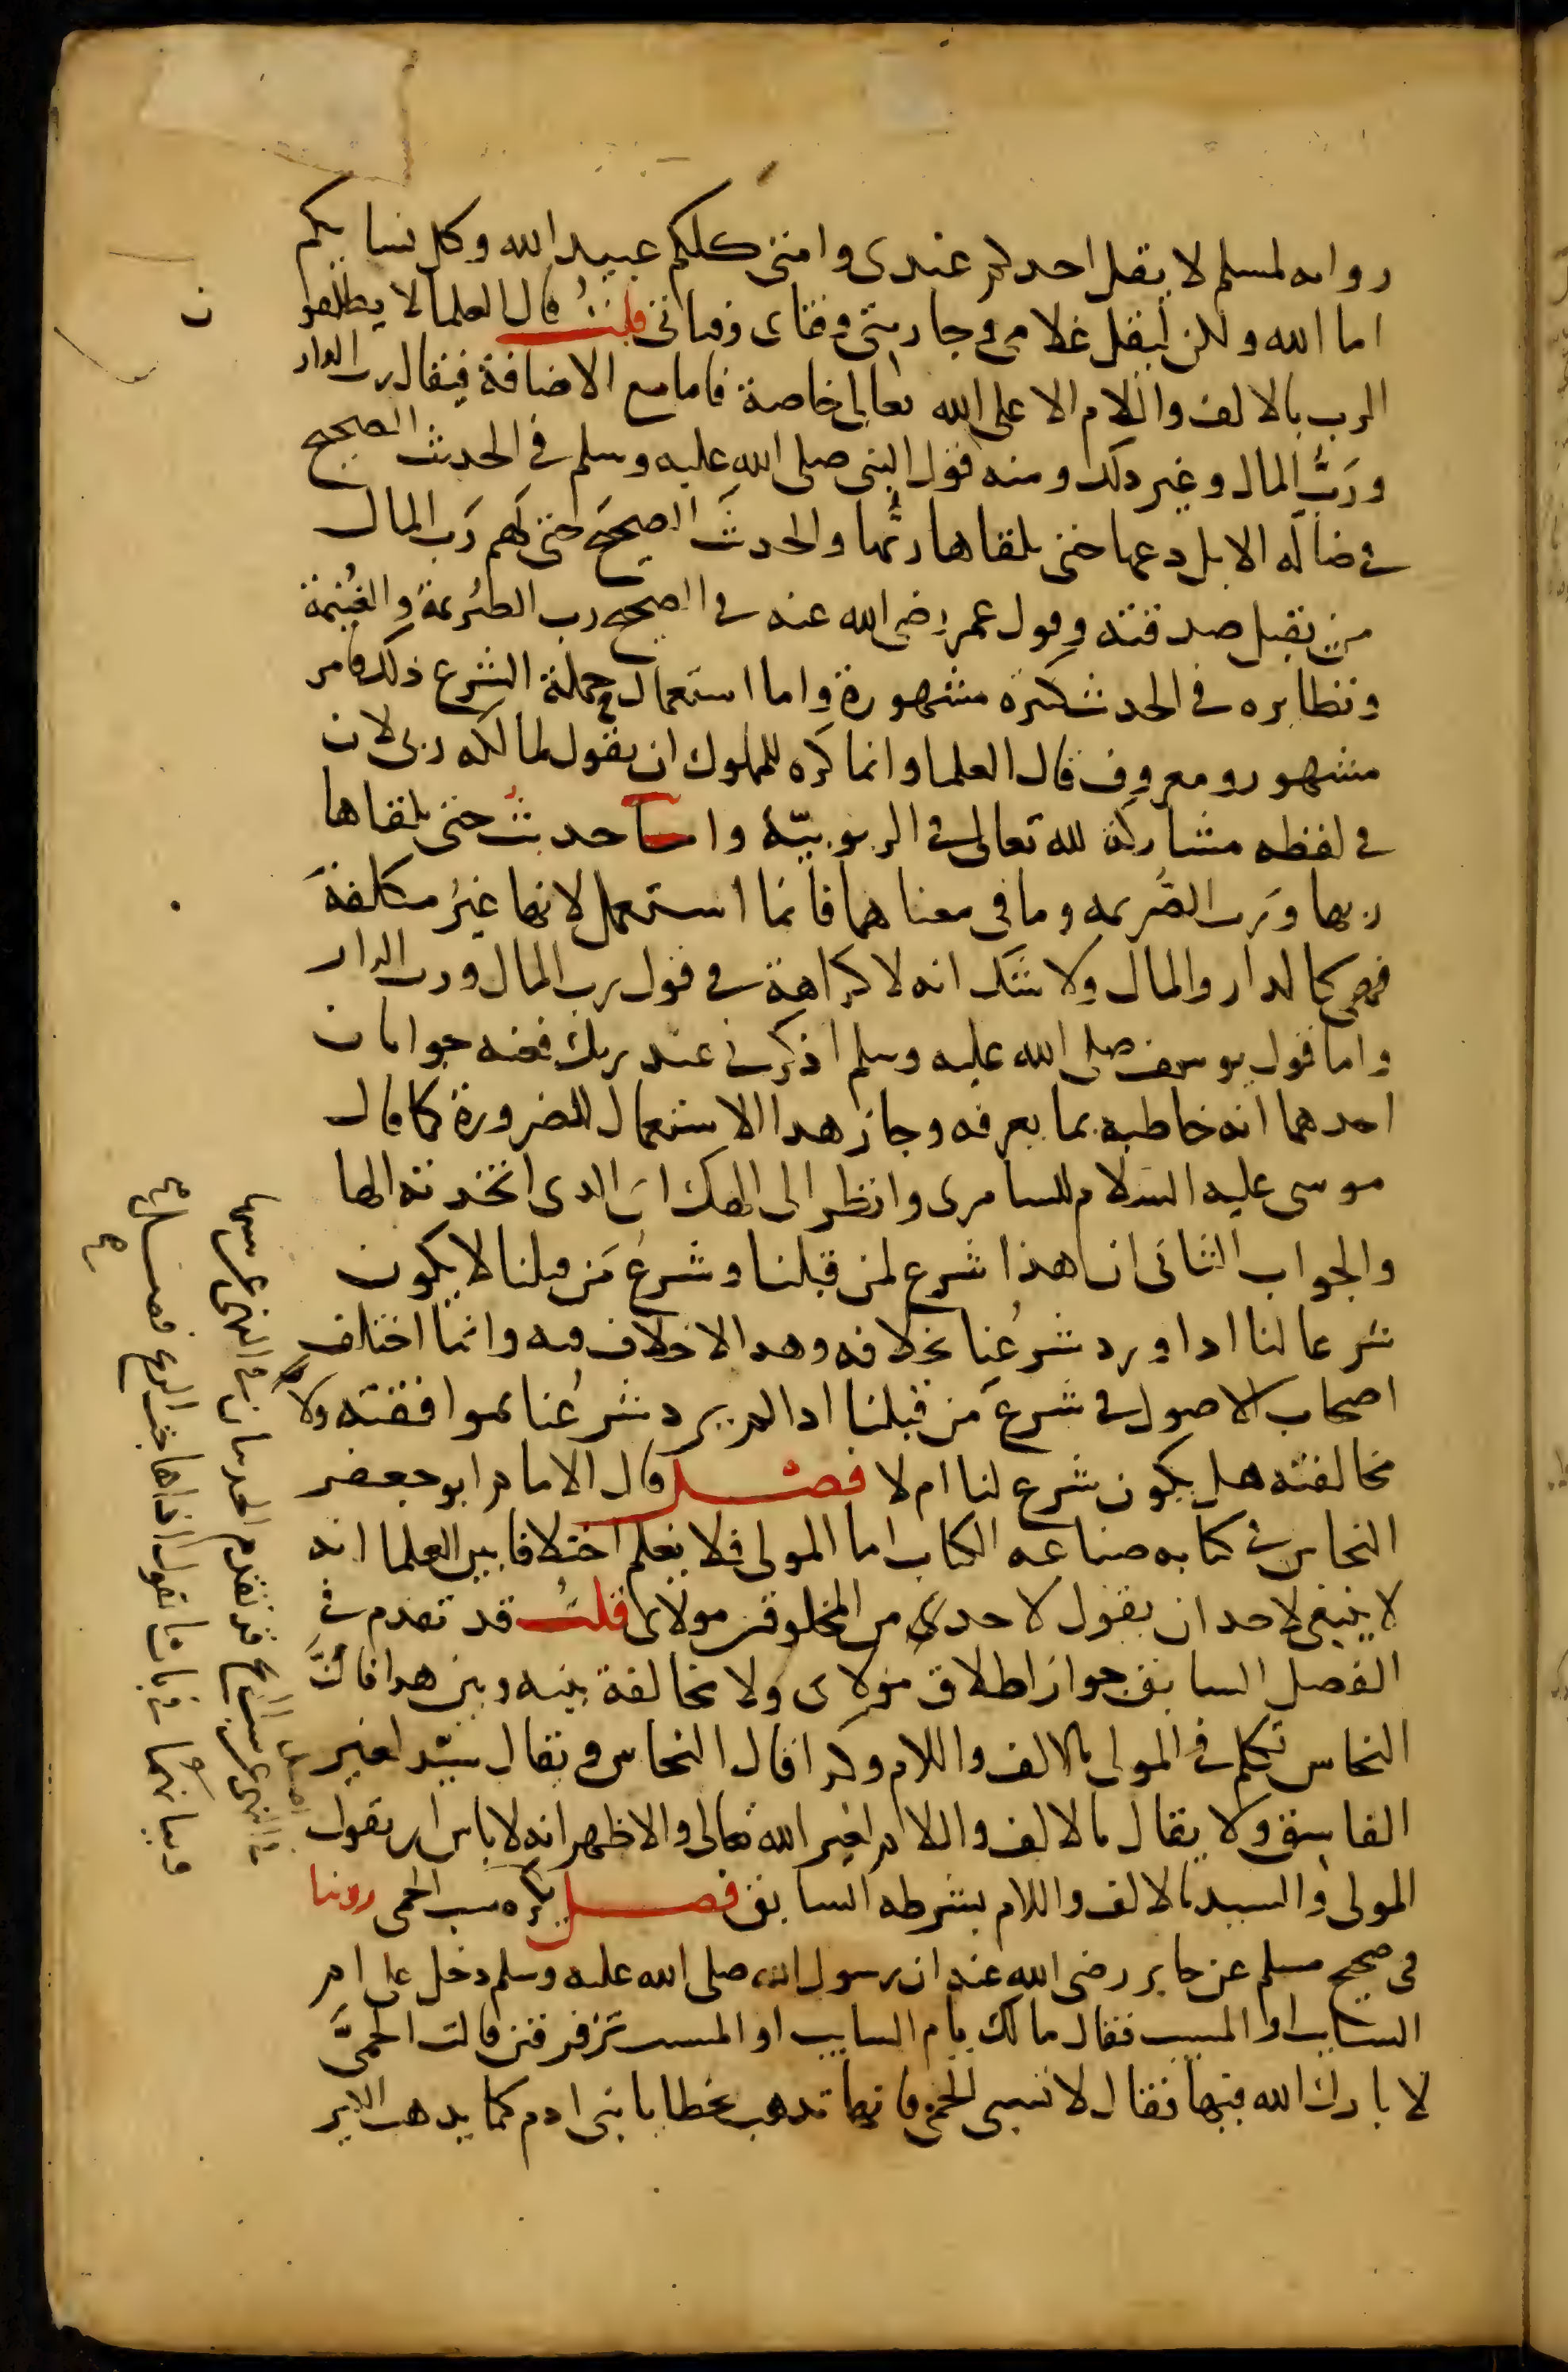 رواىه لمسلم لا يقل احدكم عبدى وامتى كلكم عبيد الله وكل نسايكم
اما الله ولكن ليقل غلامى وجاريتى وفتاى وفتاتى قلتُ قال العلما لا يطلق
الرب بالالف واللام الا على الله تعالى خاصة فاما مع الاضافة فيقال رب الدار
ورَبُّ المال وغير ذلك ومنه قول النبى صلى الله عليه وسلم فى الحديث الصحيح
فى ضالة الابل دعها حتى يلقاها ربُّها والحديث الصحيح حتى يُهم رَب المال
من يقبل صدقته وقول عمر رضى الله عنه فى الصحيح رب الصُريمة والغُنيمة
ونظايره فى الحديث كثيرة مشهورة واما استعمال حملة الشرع ذلك فامر
مشهور ومعروف قال العلما وانما كره للمملوك ان يقول لمالكه ربى لان
فى لفظه مشاركة لله تعالى فى الربوبيّة واما حديث حتى يلقاها
ربها ورب الصُريمه وما فى معناهما فانما استعمل لانها غيرُ مكلفة
فهى كالدار والمال ولا شك انه لا كراهة فى قول رب المال ورب الدار
واما قول يوسف صلى الله عليه وسلم اذكرنى عند ربك فعنه جوابان
احدهما انه خاطبه بما يعرفه وجاز هذا الاستعمال للضرورة كما قال
موسى عليه السلام للسامرى وانظر الى الهك اى الذى اتخذته الها
والجواب الثانى ان هذا شرع لمن قبلنا وشرعُ مَن قبلنا لا يكون
شرعا لنا اذا ورد شرعُنا بخلافه وهذا لا خلاف فيه وانما اختلف
اصحاب الاصول فى شرع مَن قبلنا اذا لم يرد شرعُنا بموافقته ولا
مخالفته هل يكون شرع لنا ام لا فصل قال الامام ابو جعفر
النحاس فى كتابه صناعه الكتاب اما المولى فلا يعلم اختلافا بين العلما انه
لا ينبغى لاحد ان يقول لاحد من المخلوقين مولاى قلتُ قد تقدم فى
الفصل السابق جواز اطلاق مولاى ولا مخالفة بينه وبين هذا فانَّ
النحاس تكلم فى المولى بالالف واللام وكذا قال النحاس ويقال سيّد لغير
الفاسق ولا يقال بالالف واللام لغير الله تعالى والاظهر انه لا باس ان يقول
المولى والسيد بالالف واللام بشرطه السابق فصل يكره سب الحمى روينا
فى صحيح مسلم عن جابر رضى الله عنه ان رسول الله صلى الله عليه وسلم دخل على ام
السايب او المسيب فقال مالك يا ام السايب او المسيب تزفزفين قالت الحمىَّ
لا بارك الله فيها فقال لا تسبى الحمى فانها تذهب خطايا بنى ادم كما يذهب الكير
فصل فى النهى عن سبها